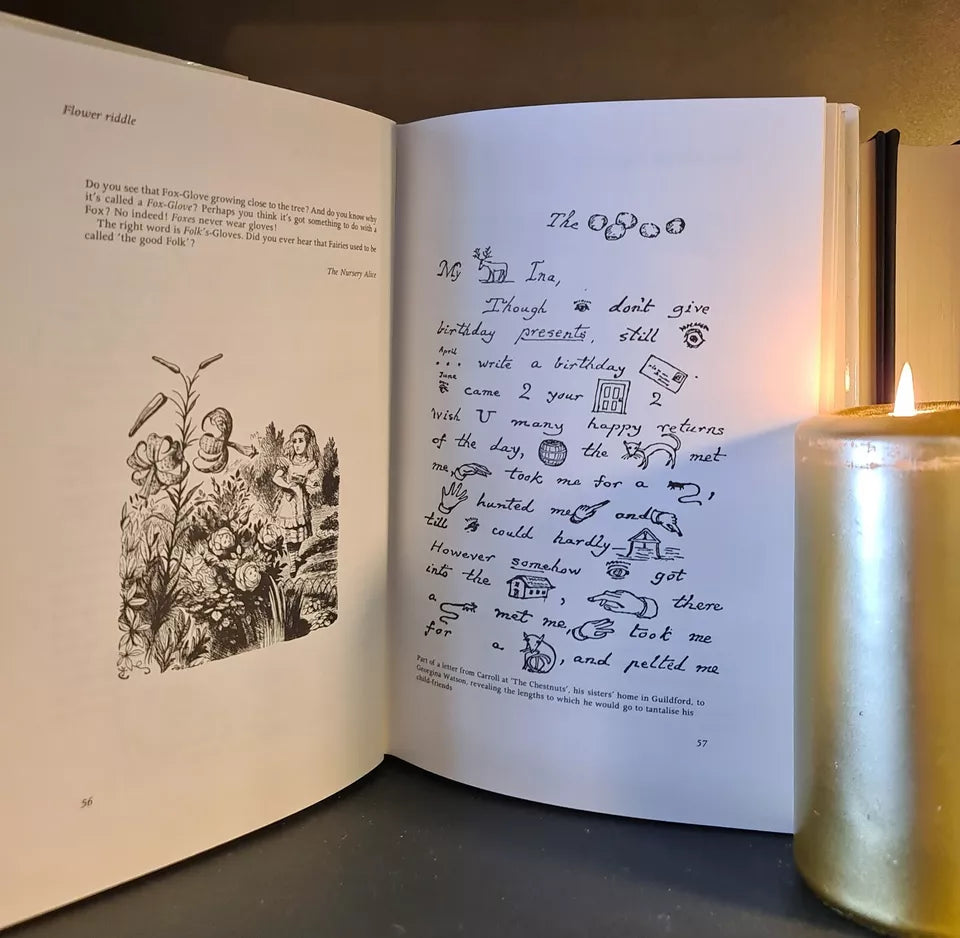 Flower riddle
Do you see that Fox-Glove growing close to the tree? And do you know why
it's called a Fox-Glove? Perhaps you think it's got something to do with a
Fox? No indeed! Foxes never wear gloves!
The right word is Folk's-Gloves. Did you ever hear that Fairies used to be
called 'the good Folk'?
The Nursery Alice
56
The
My Ina,
Though don't give
birthday presents, still
April
... write a birthday .
June
came 2 your 2
wish U many happy returns
of the day, the met
me, took me for a ,
hunted me and
till could hardly
However somehow got
into the , there
a met me, took me
for a , and pelted me
Part of a letter from Carroll at 'The Chestnuts', his sisters' home in Guildford, to
Georgina Watson, revealing the lengths to which he would go to tantalise his
child-friends
57